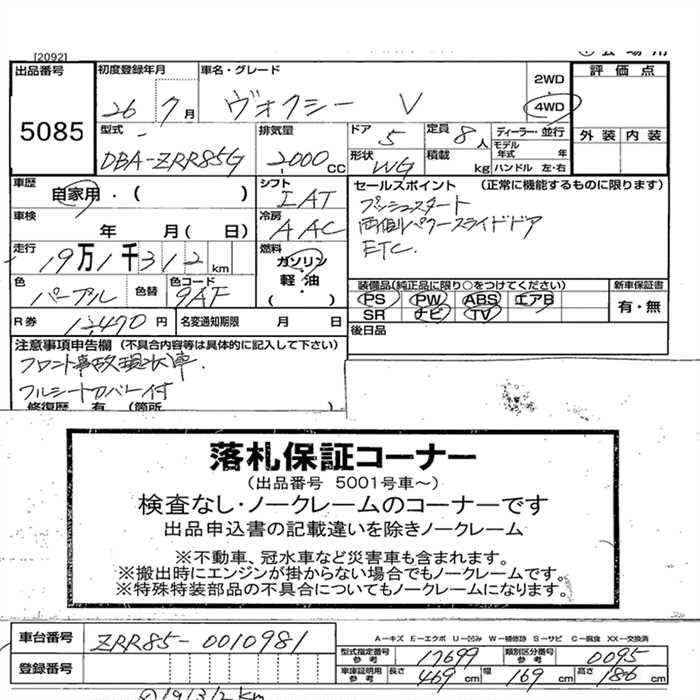 [2092]
出品番号 初度登録年月 車名・グレード 2WD 評価点
5085 26 7月 ヴォクシー V 4WD
型式 排気量 ドア 5 定員 8人 ディーラー・並行 外装 内装
モデル年式 年
DBA-ZRR85G 2000cc 形状 WG 積載 kg ハンドル 左・右
車歴 自家用・( ) シフト IAT セールスポイント (正常に機能するものに限ります)
車検 年 月( 日) 冷房 AAC プッシュスタート
両側パワースライドドア
走行 19万1千312km 燃料 ガソリン・軽油・( ) ETC.
色 パープル 色替 色コード 9AF
装備品(純正品に限り○をつけてください) 新車保証書
PS PW ABS エアB 有・無
SR ナビ TV
R券 12,470円 名変通知期限 月 日 後日品
注意事項申告欄 (不具合内容等は具体的に記入して下さい)
フロント事故現状車.
フルシートカバー付
修復歴 有 (箇所
落札保証コーナー
(出品番号 5001号車~)
検査なし・ノークレームのコーナーです
出品申込書の記載違いを除きノークレーム
※不動車、冠水車など災害車も含まれます。
※搬出時にエンジンが掛からない場合でもノークレームです。
※特殊特装部品の不具合についてもノークレームになります。
車台番号 ZRR85-0010981
A-キズ E-エクボ U-凹み W-補修跡 S-サビ C-腐食 XX-交換済
型式指定番号 参考 17699 類別区分番号 参考 0095
登録番号
車庫証明用 参考 長さ 469cm 幅 169cm 高さ 186cm
191312km